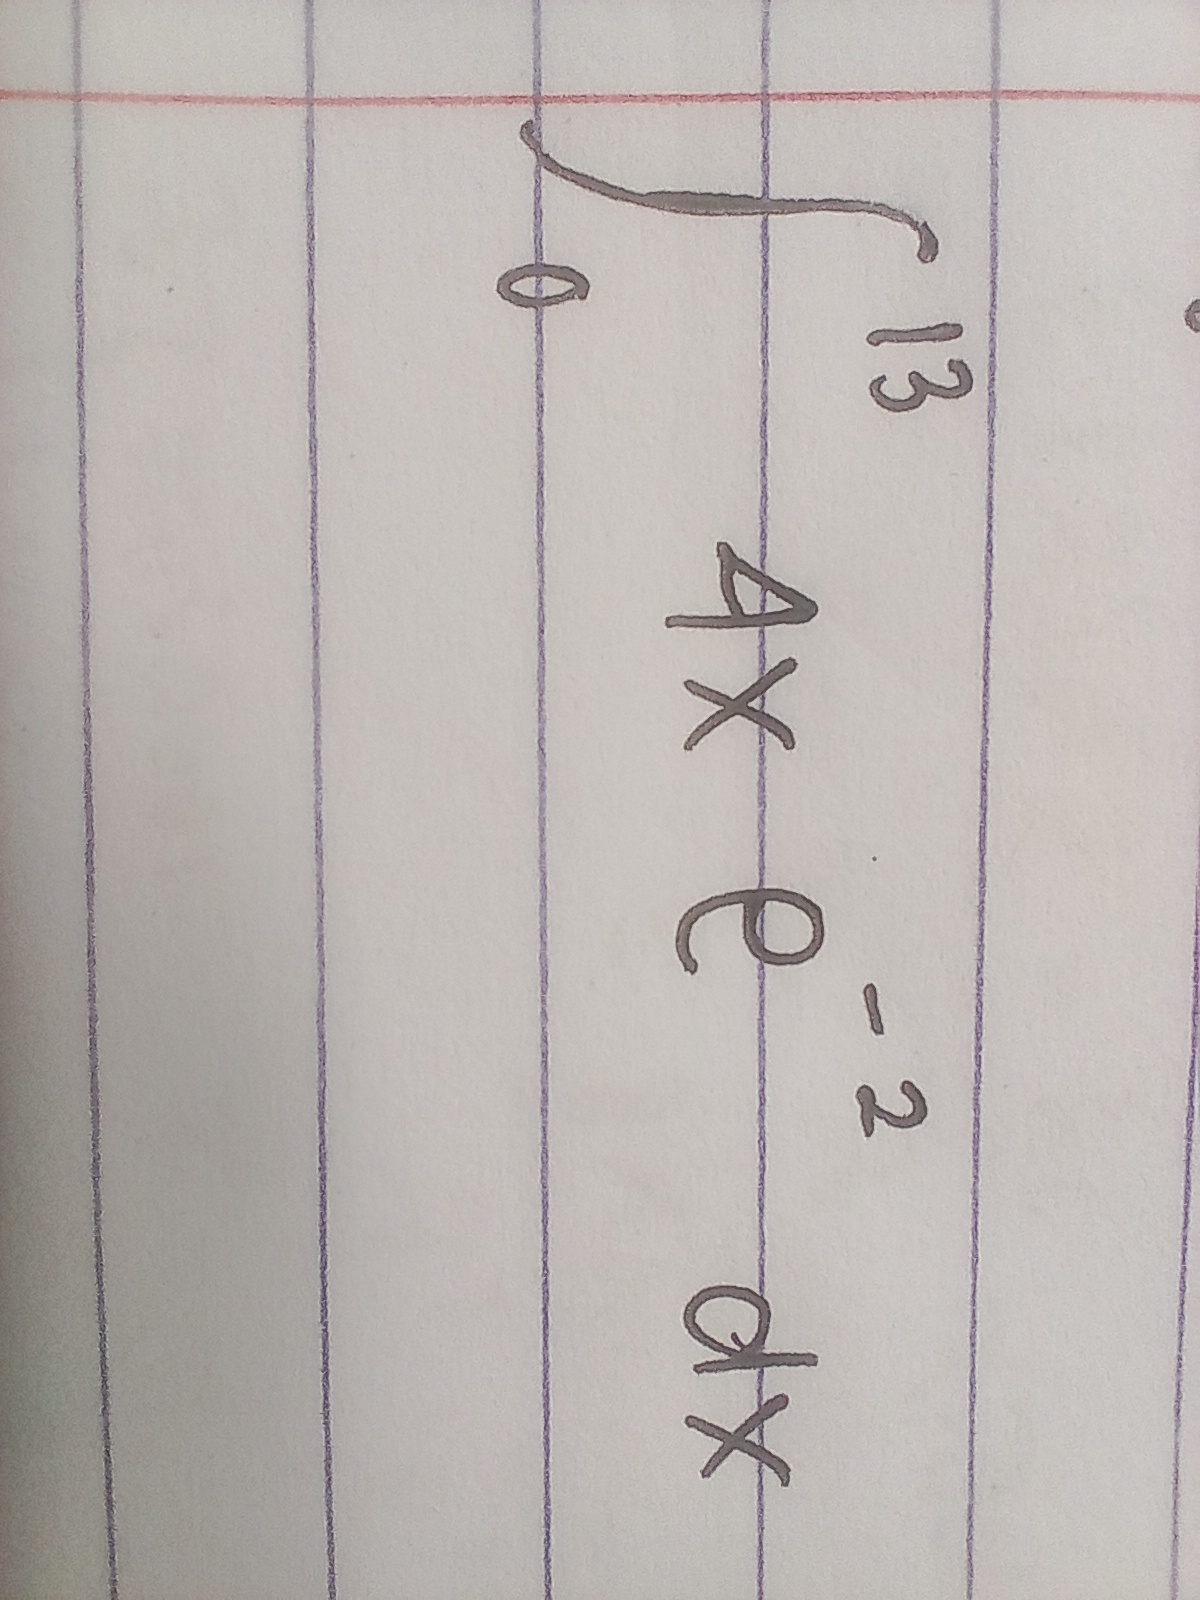 ∫₀¹³ 4x e⁻² dx